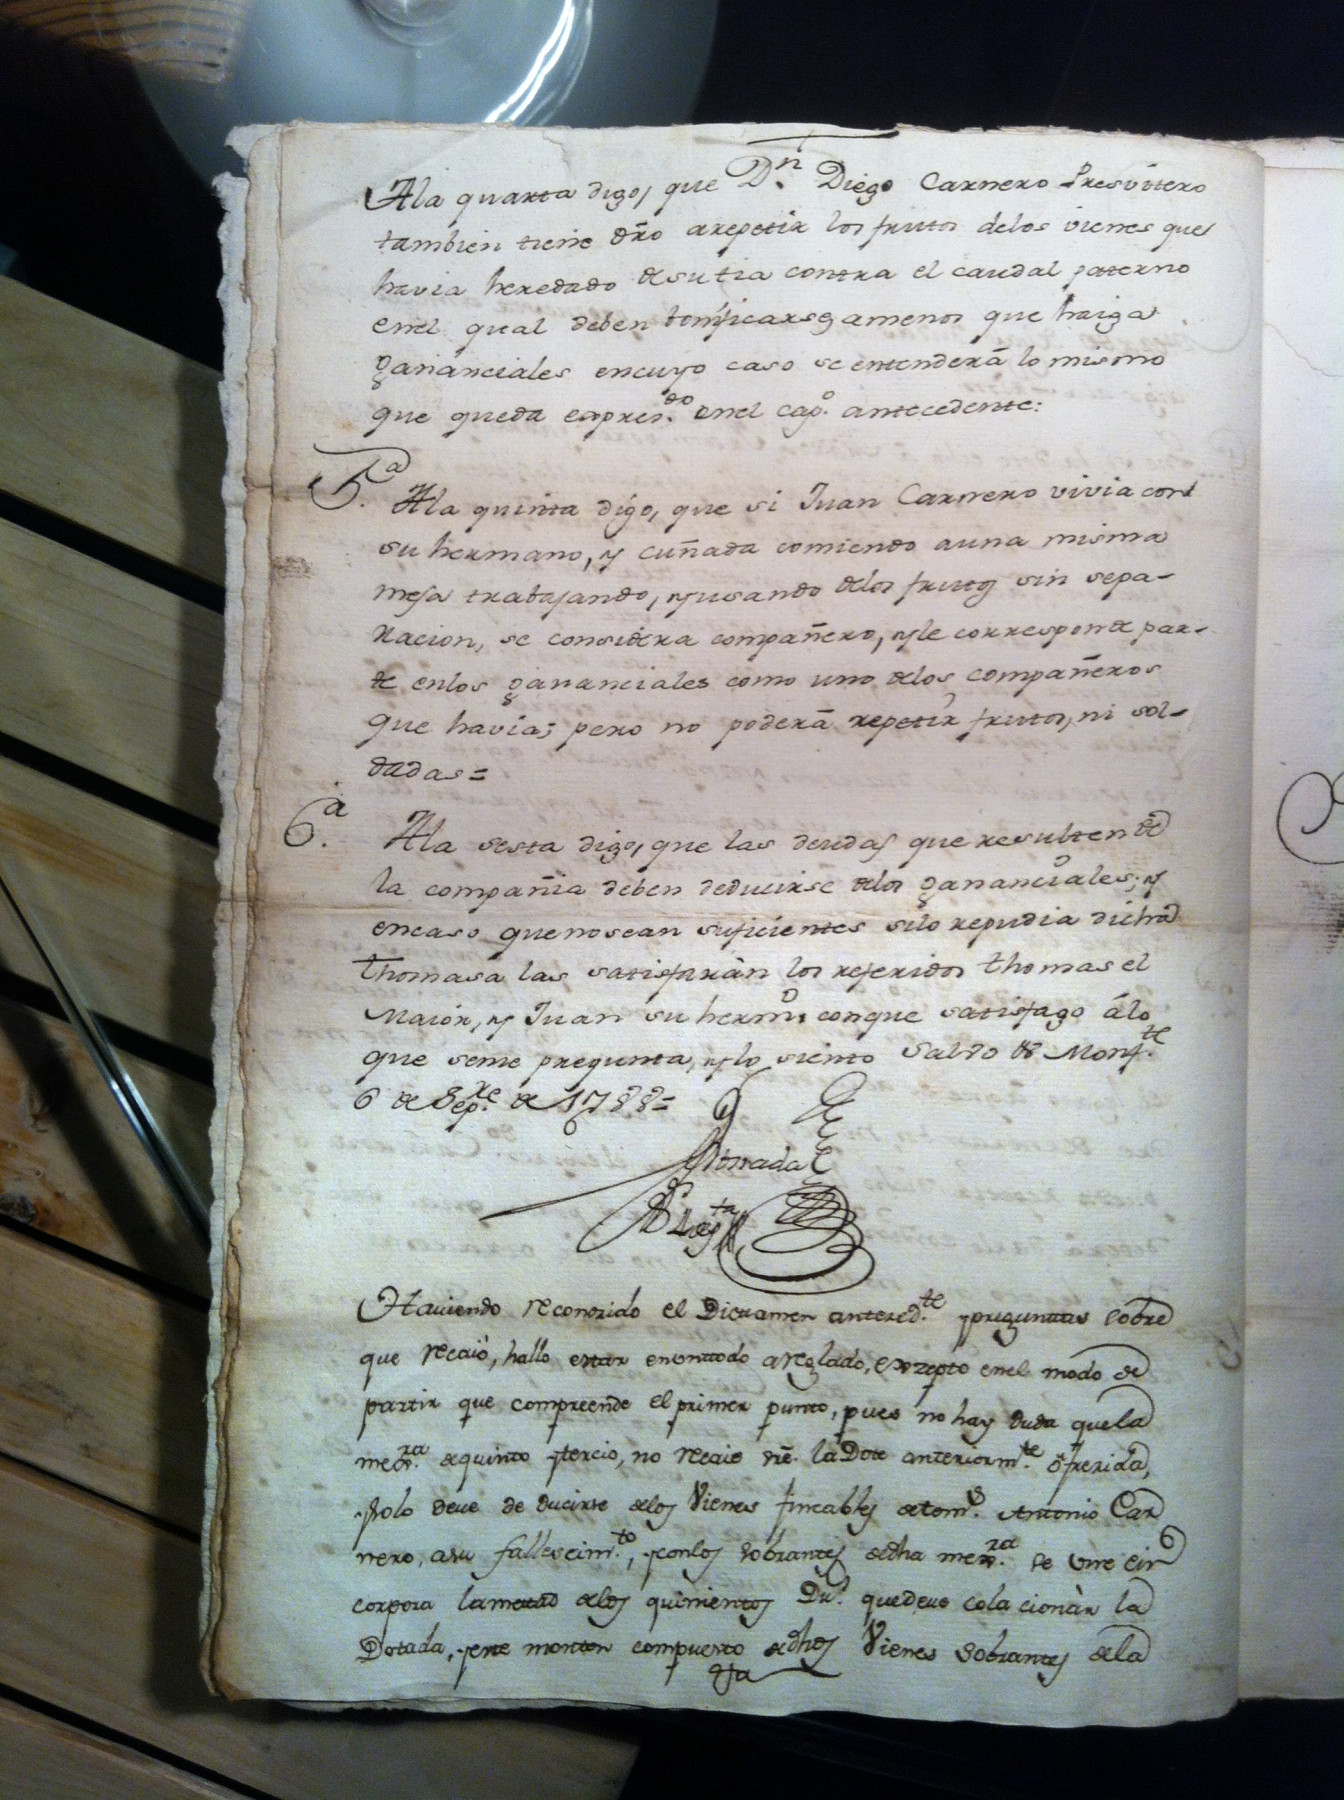 Ala quarta digo, que Dn. Diego Carnero Presvitero
tambien tiene dro arepetir los frutos delos vienes que
havia heredado de su tia contra el caudal paterno
enel qual deben bonificarse, amenos que haiga
gananciales encuyo caso se entenderá lo mismo
que queda expres.do enel capo. antecedente:
5.a Ala quinta digo, que si Juan Carnero vivia con
su hermano, y cuñada comiendo auna misma
mesa trabajando, y usando delos frutos sin sepa-
racion, se considera compañero, y le corresponde par-
te enlos gananciales como uno delos compañeros
que havia; pero no poderá repetir frutos, ni sol-
dadas=
6.a Ala sesta digo, que las deudas que resulten de
la compañia deben deducirse delos gananciales; y
encaso que no sean suficientes silo repudia dicha
Thomasa las satisfarán los referidos Thomas el
Maior, y Juan su hermo. conque satisfago álo
que seme pregunta, y lo siento Salvo &. Monf.te
6 de Sep.re de 1788=
Haviendo reconozido el Dictamen anteced.te y preguntas sobre
que recaió, hallo estar enontodo areglado, exzepto enel modo de
partir que compreende el primer punto, pues no hay duda quela
mex.ra dequinto y tercio, no recaie sre. la Dote anteriorm.te ofrerida,
y solo deve de ducirse delos Vienes fincables de tom.s Antonio Car
nero, asu fallescim.to, y conlos sobrantes dedha mex.ra se une e in
corpora lametad delos quinientos Du.s quedeve colacionàr la
Dotada, y este monton compuesto dedhos Vienes Sobrantes dela